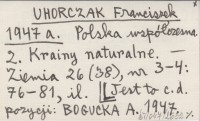 UHORCZAK Franciszek
1947 a. Polska współczesna.
2. Krainy naturalne.
Ziemia 26 (38), nr 3-4:
76-81, il. Jest to c.d.
pozycji: BOGUCKA A. 1947.